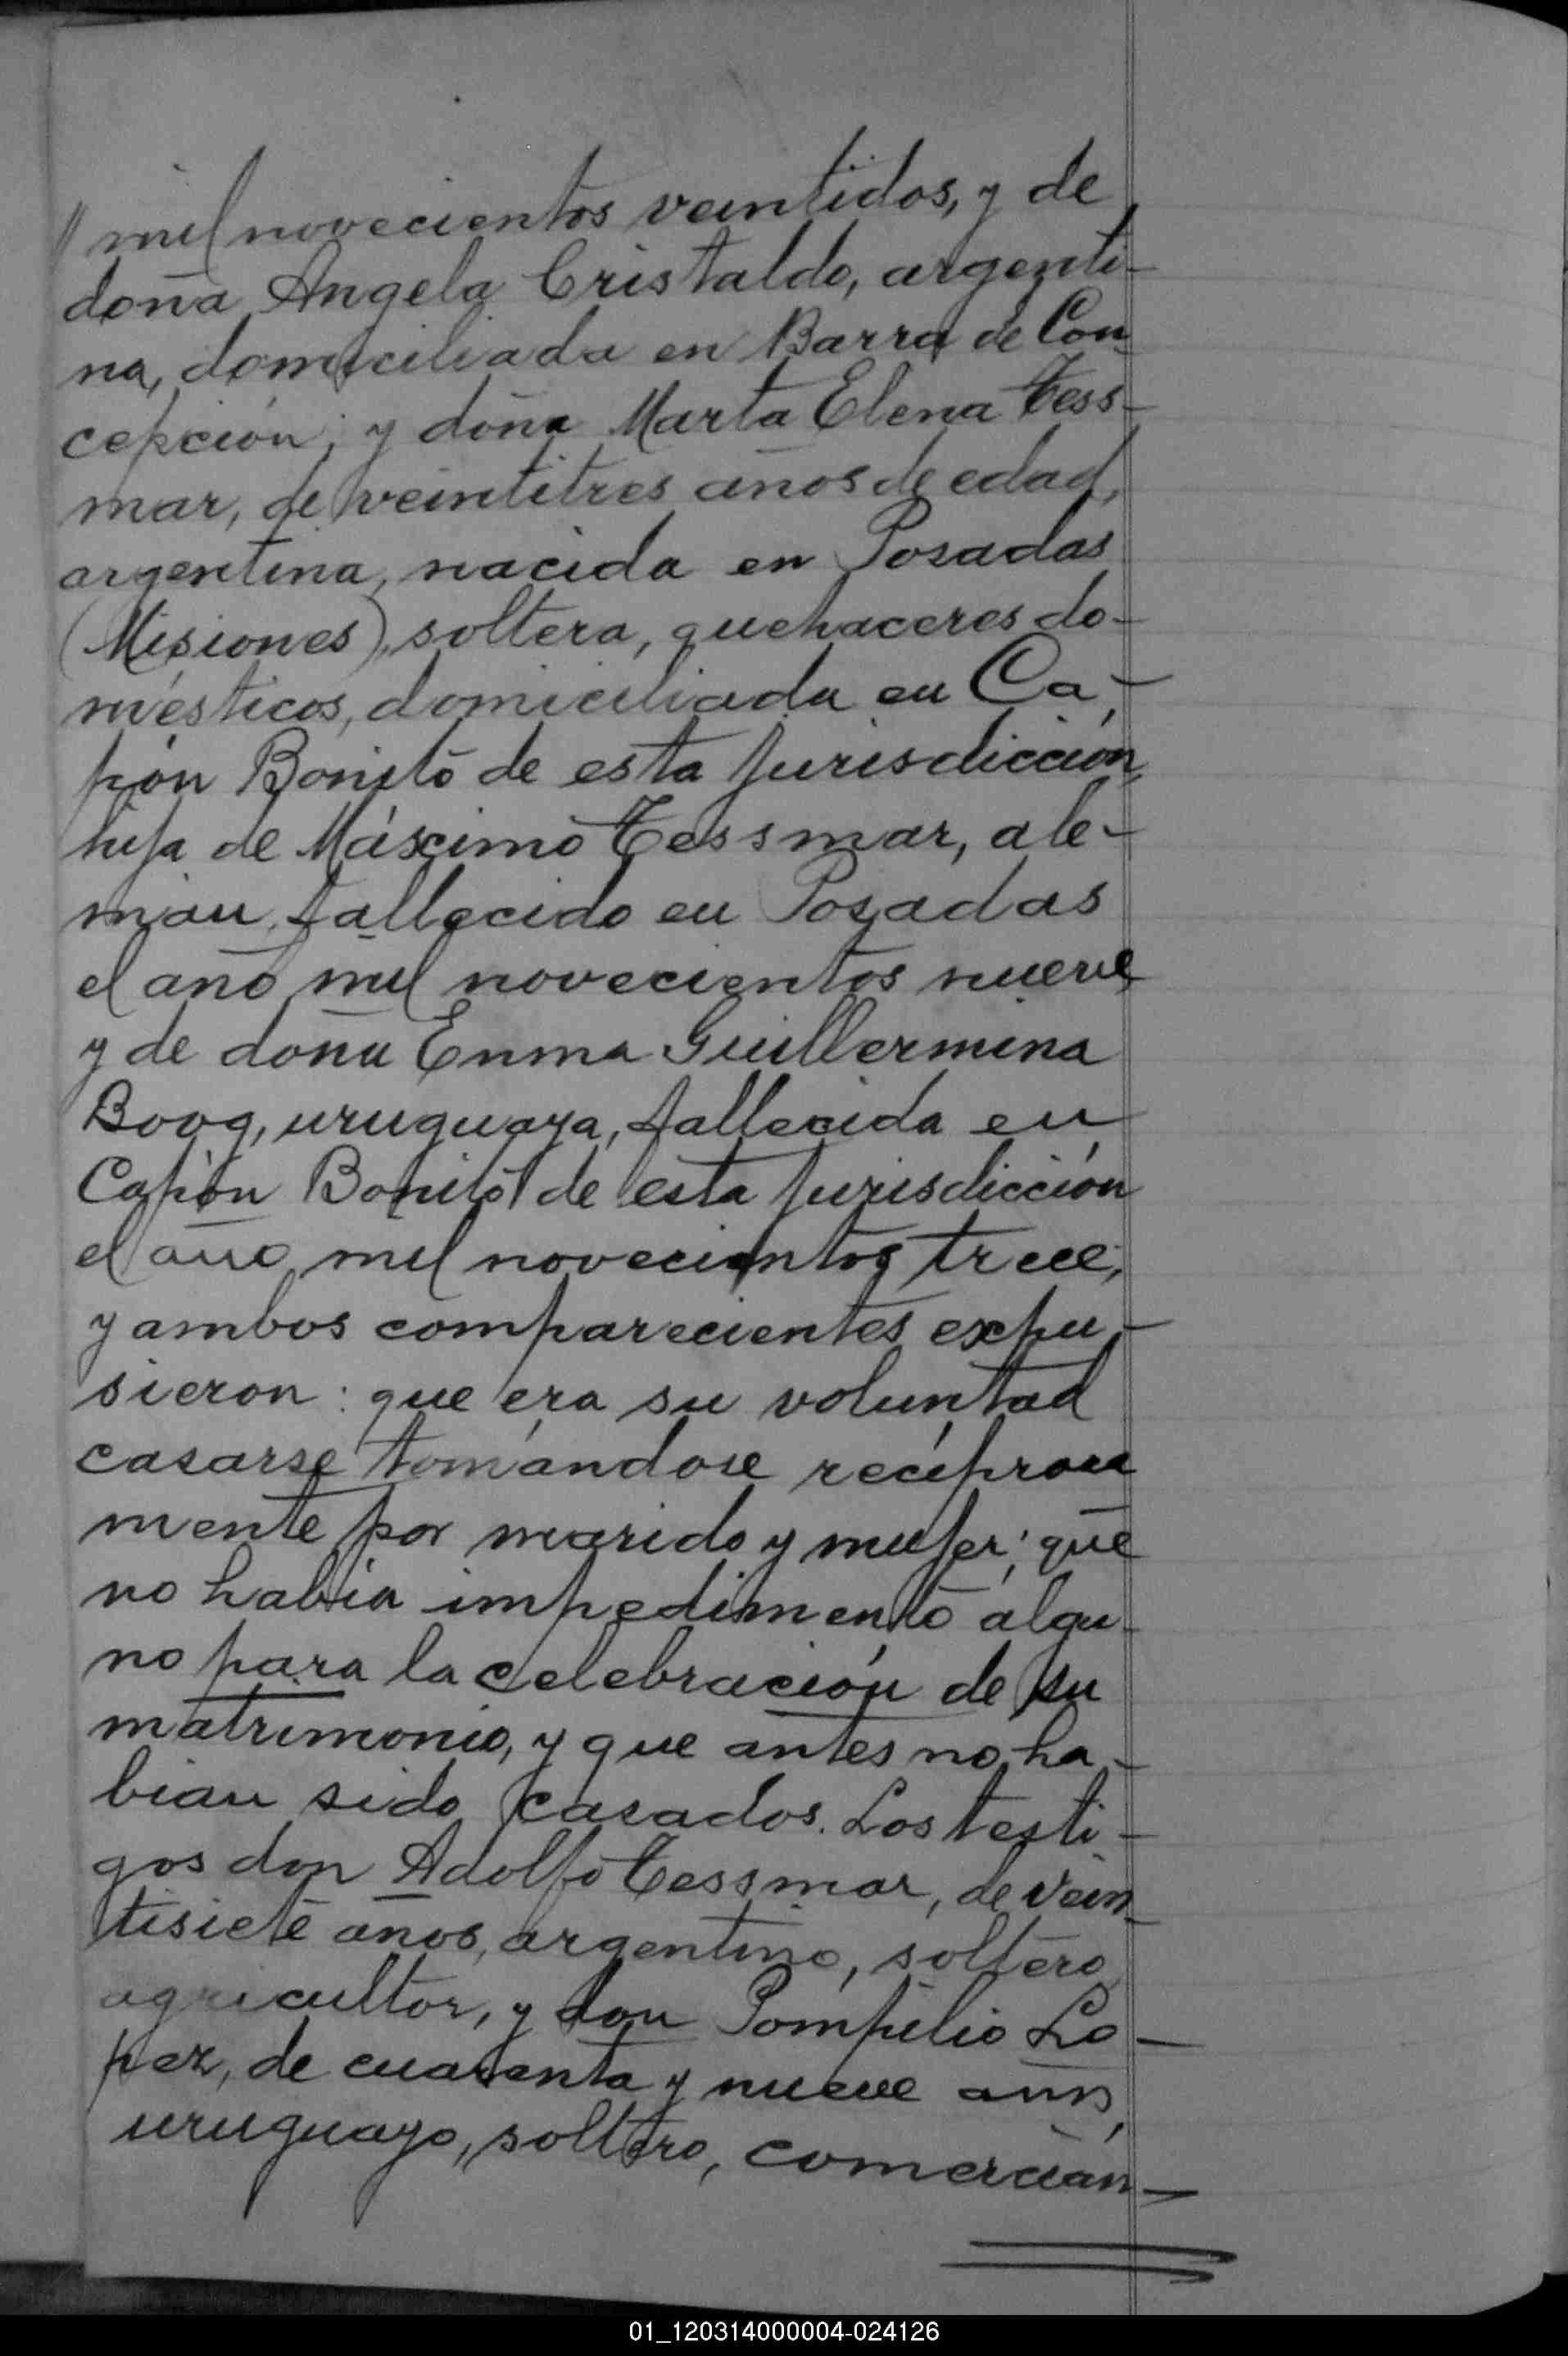 // mil novecientos veintidos, y de
doña Angela Cristaldo, argenti-
na, domiciliada en Barra de Con-
cepción; y doña Marta Elena Tess-
mar, de veintitres años de edad,
argentina, nacida en Posadas
(Misiones), soltera, quehaceres do-
mésticos, domiciliada en Ca-
pón Bonito de esta jurisdicción,
hija de Máximo Tessmar, ale-
mán, fallecido en Posadas
el año mil novecientos nueve,
y de doña Enma Guillermina
Boog, uruguaya, fallecida en
Capón Bonito de esta jurisdicción
el año mil novecientos trece;
y ambos comparecientes expu-
sieron: que era su voluntad
casarse tomándose recíproca
mente por marido y mujer; que
no había impedimento algu-
no para la celebración de su
matrimonio, y que antes no ha-
bían sido casados. Los testi-
gos don Adolfo Tessmar, de vein-
tisiete años, argentino, soltero,
agricultor, y don Pompilio Lo-
pez, de cuarenta y nueve años,
uruguayo, soltero, comercian-
01_120314000004-024126